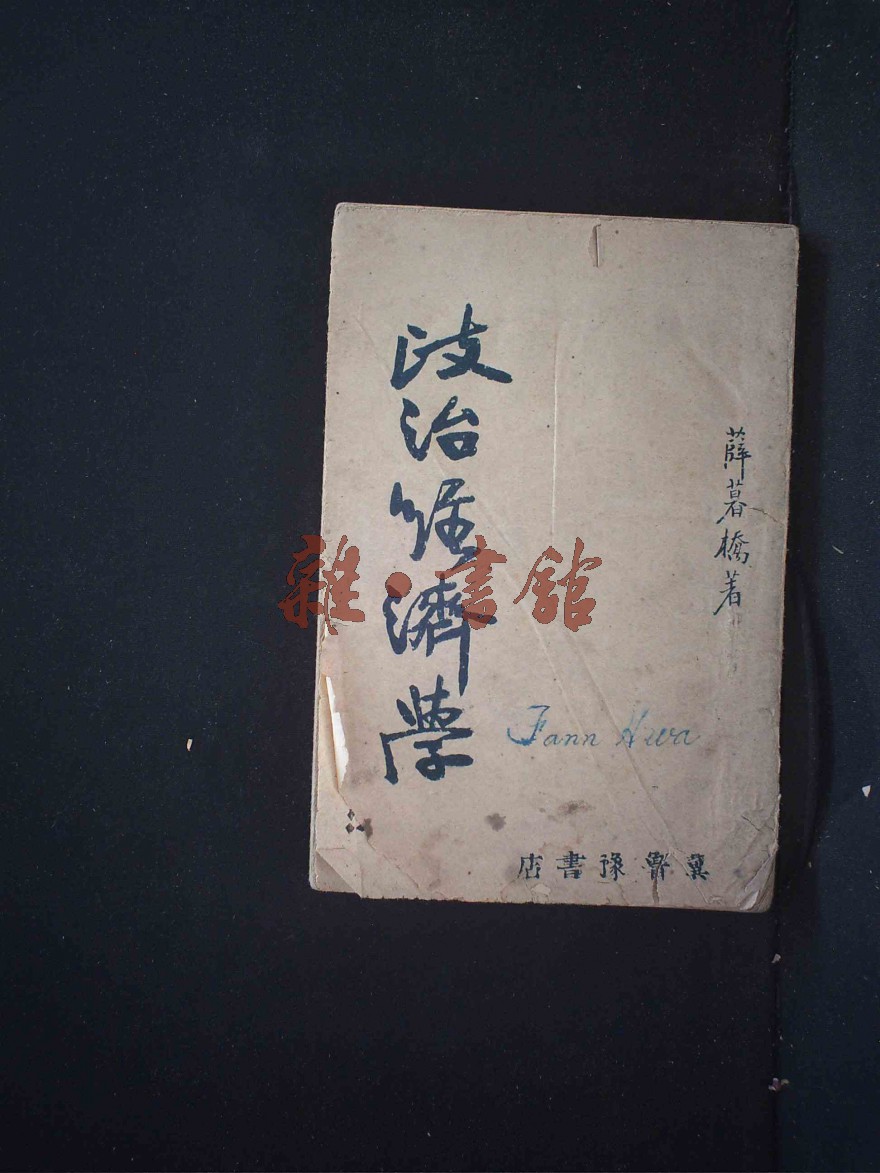 薛暮橋著
政治經濟學
Fann Hwa
冀魯豫書店
雜·書館